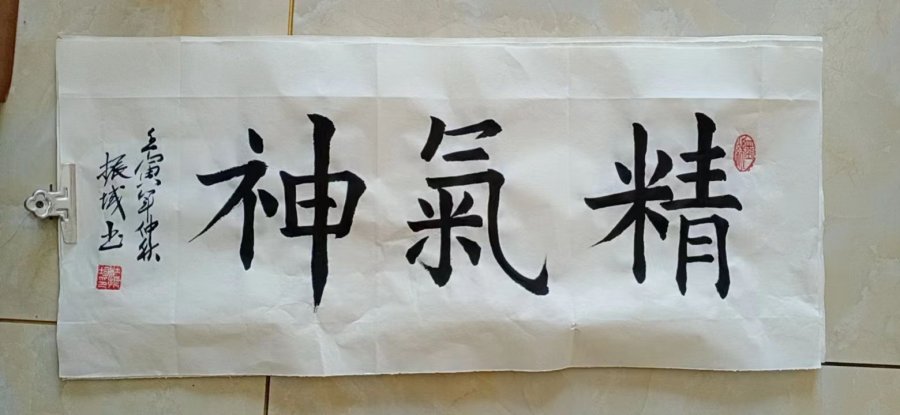 精氣神
壬寅年仲秋
振域书